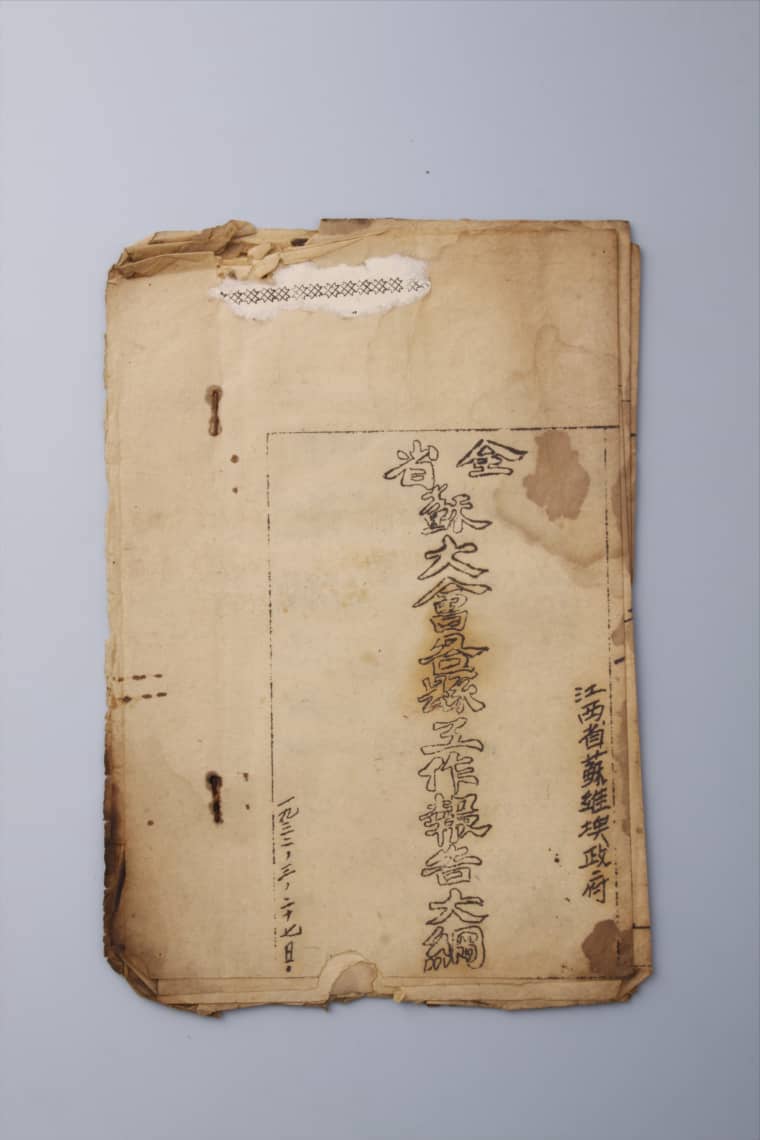 江西省蘇維埃政府
全省蘇大會各縣工作報告大綱
一九三二，三，二十七日．